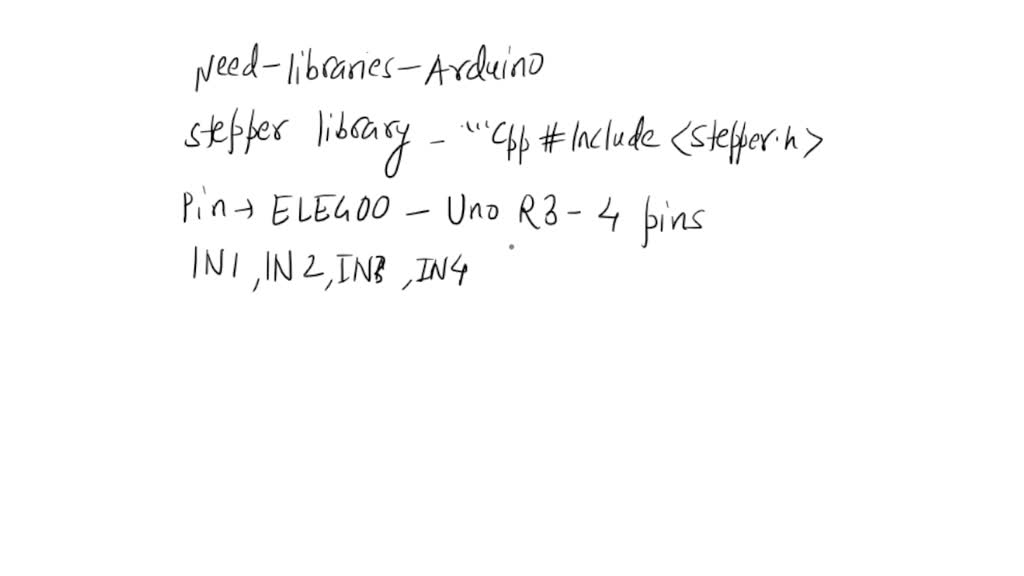 Need-libraries-Arduino
stepper library - "'Cpp #Include <stepper.h>
Pin → ELEGOO - Uno R3 - 4 pins
IN1, IN2, IN3, IN4